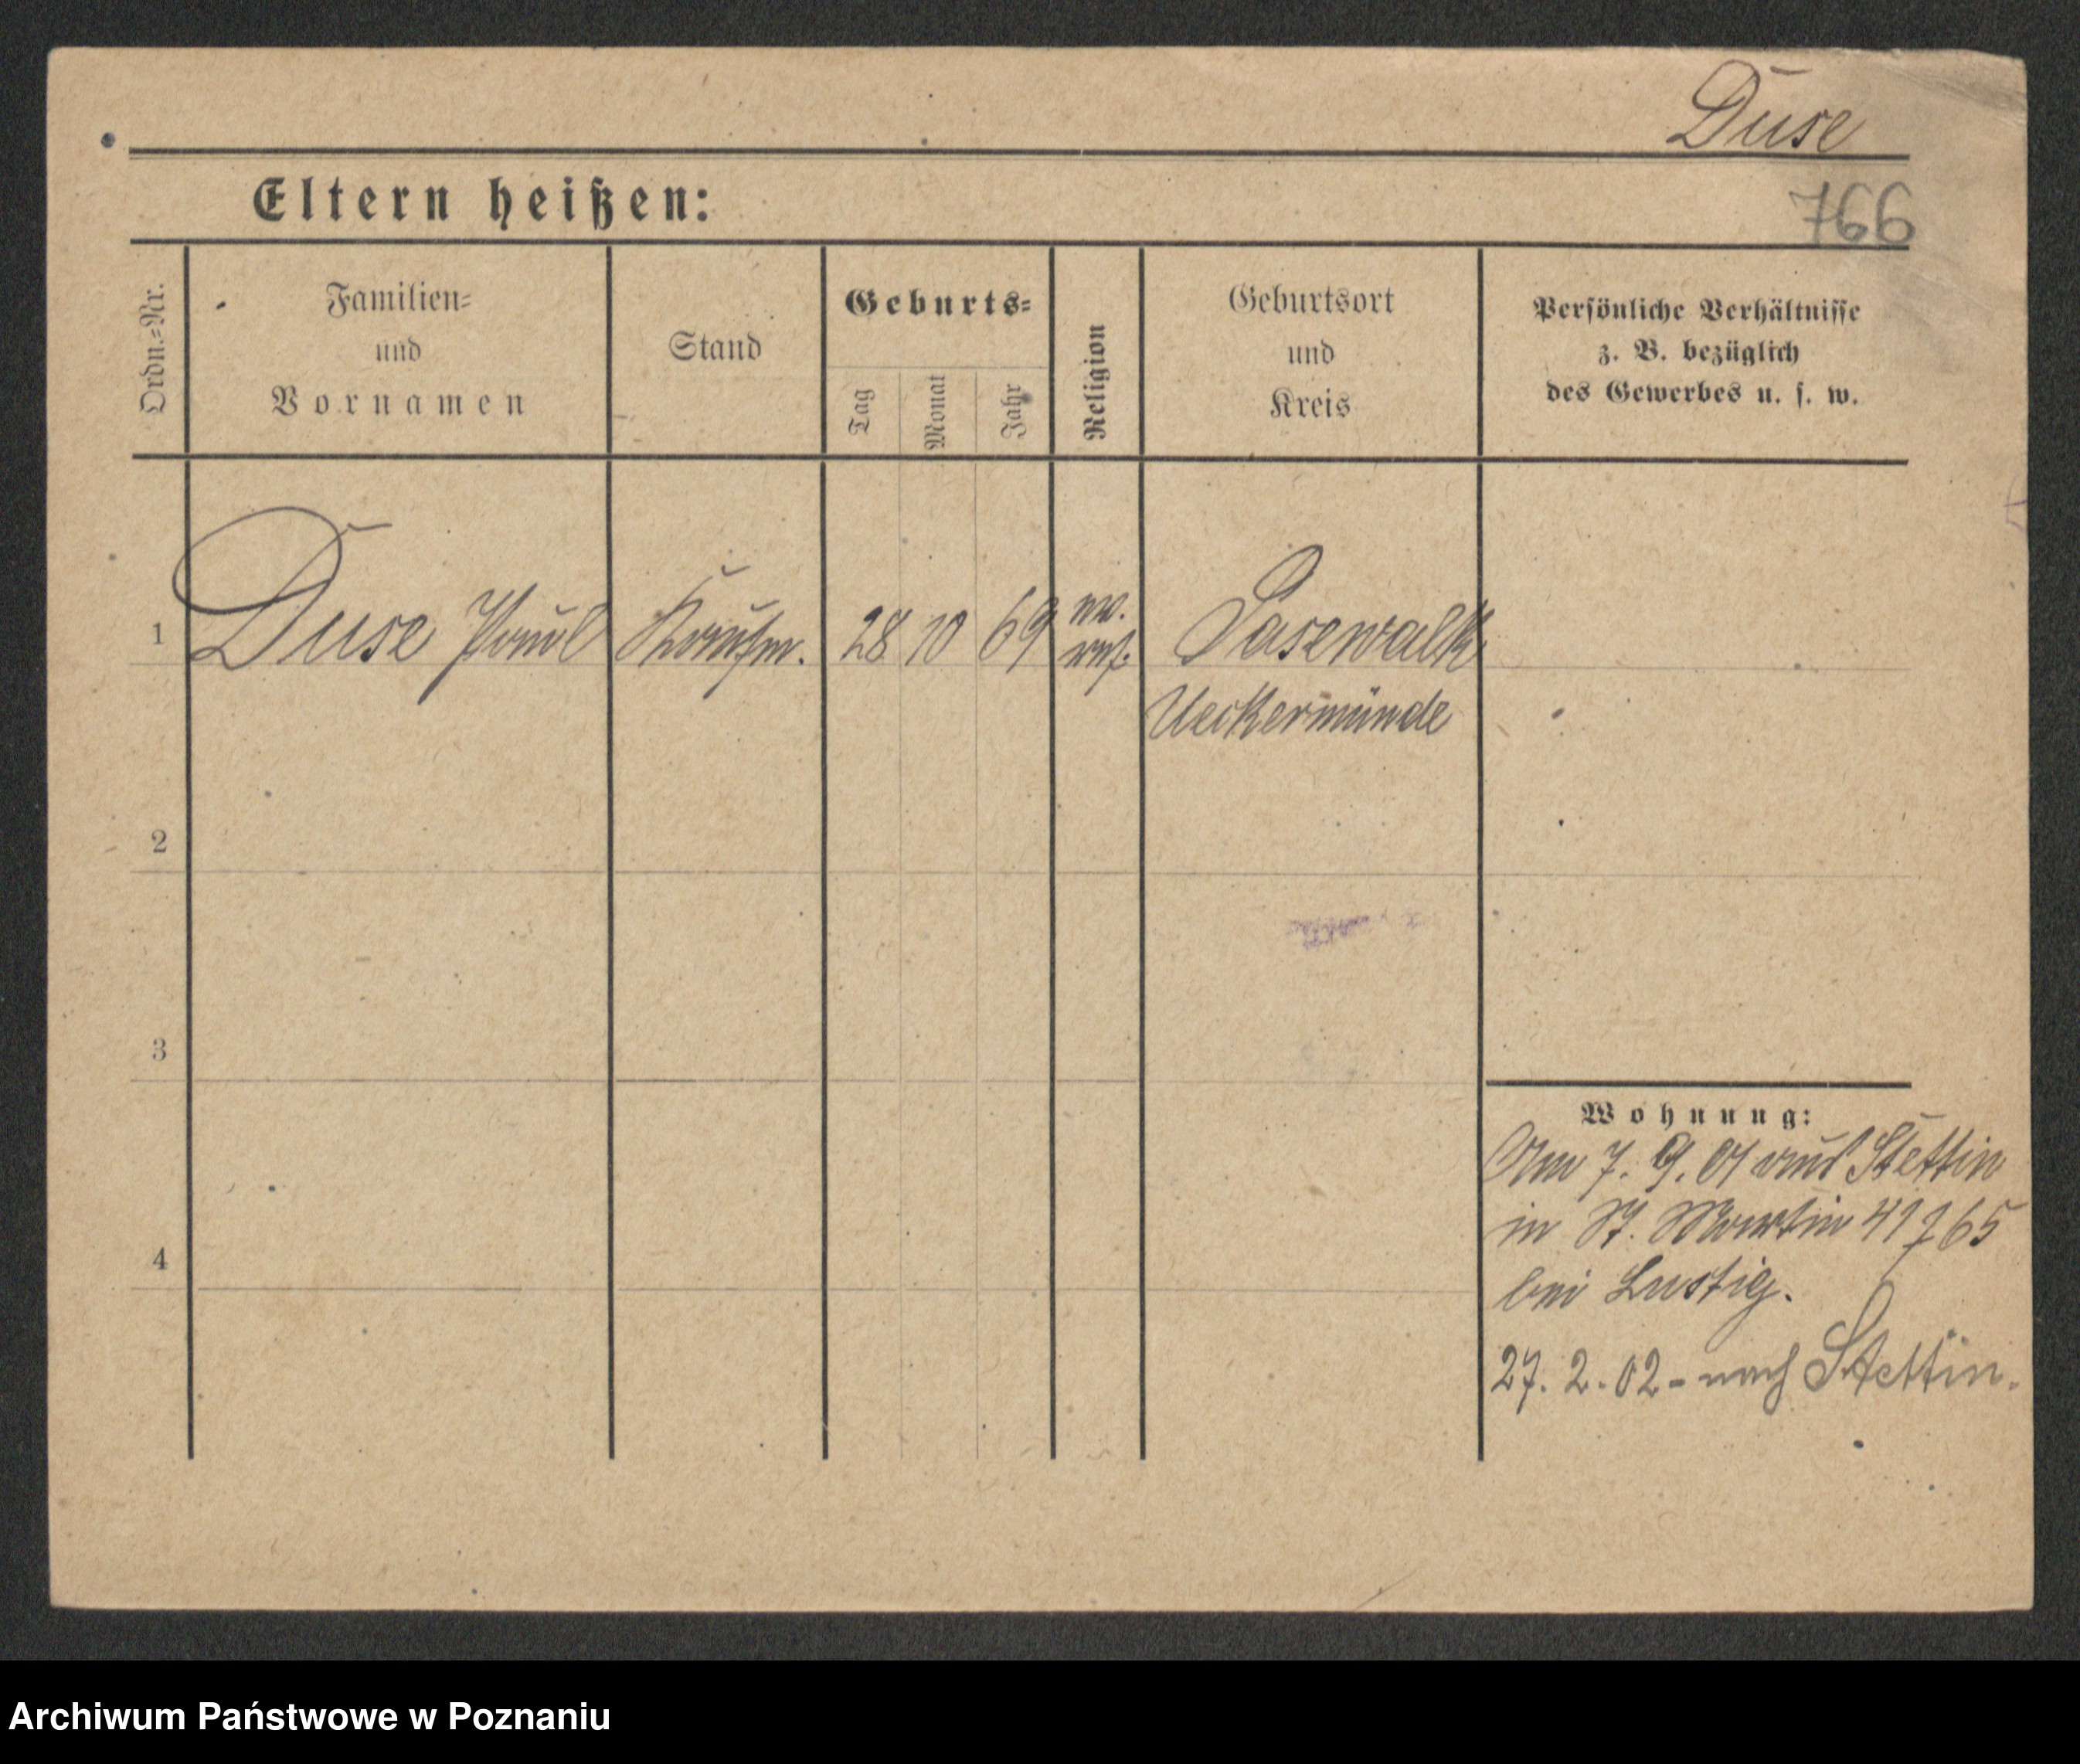 Duse
766
Eltern heißen:
Ordn.=Nr.
Familien=
und
Vornamen
Stand
Geburts=
Tag
Monat
Jahr
Religion
Geburtsort
und
Kreis
Persönliche Verhältnisse
z. B. bezüglich
des Gewerbes u. s. w.
1
Duse Paul
Kaufm.
28
10
69
Pasewalk
Ueckermünde
2
3
4
Wohnung:
Am 7. 9. 01 aus Stettin
in St. Martin
bei Lustig.
27. 2. 02 - nach Stettin.
Archiwum Państwowe w Poznaniu